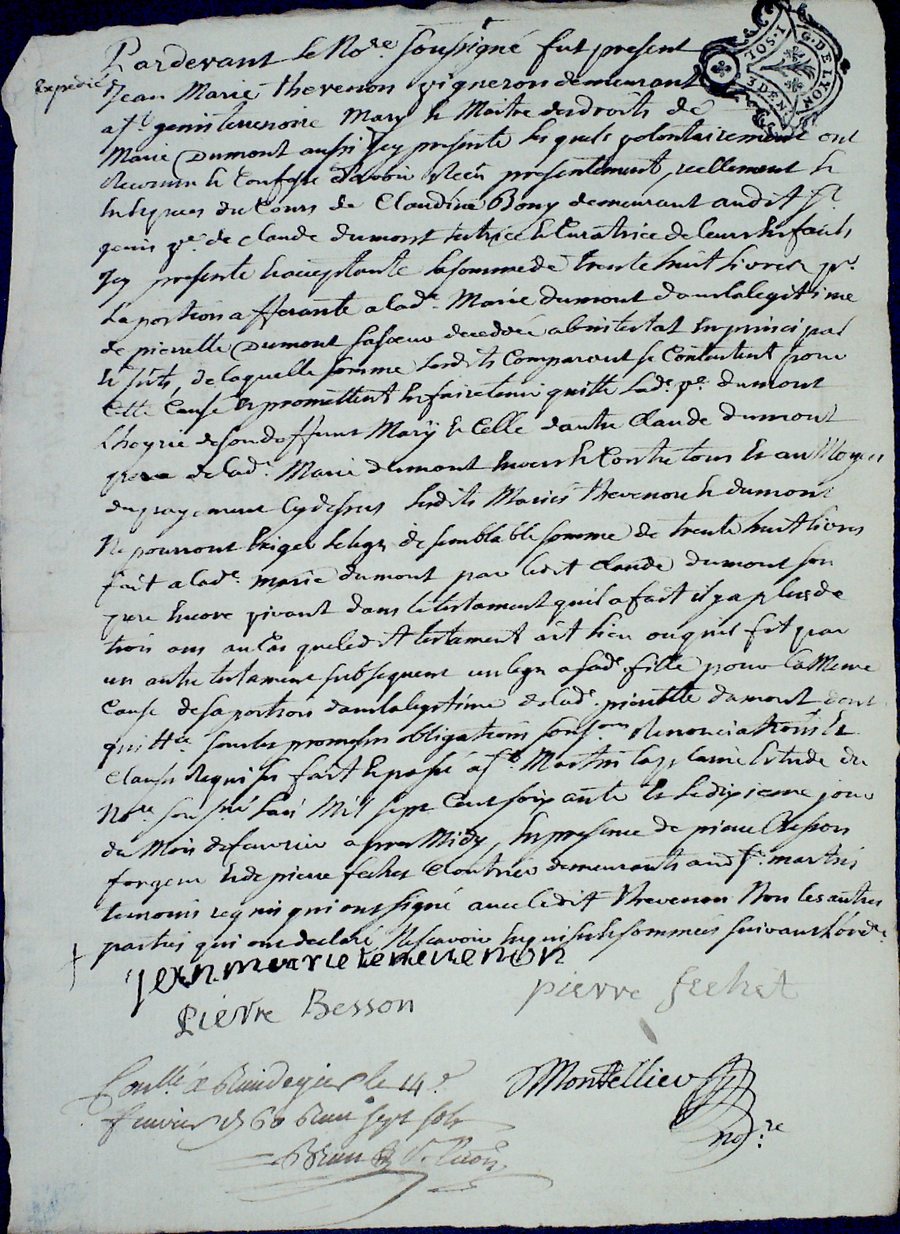 Pardevant le No.re soussigné fut present
Expediée
Jean Marie thevenon vigneron demeurant
a s.t genis terrenoire Mary le Maitre des droits de
Marie Dumont aussi jcy presente lesquels volontairement ont
reconnu et confessé d'avoir receu presentement, reellement et
en especes du Cours de Claudine Bony demeurant audit s.t
genis v.e de claude dumont tutrice et Curatrice de leurs Enfants
jcy presente et acceptante la somme de trente huit livres p.r
la portion afferante a lad.e Marie dumont dans la legitime
de pierrette Dumont sa sœur decedée abintestat En principal
et , de laquelle somme lesdits Comparant se Contentent pour
Cette Cause En promettent En faire tenir quitte lad.e v.e dumont
L'hoyrie de son deffunt Mary et Celle d'autre Claude dumont
pere de lad.e Marie dumont Envers et Contre tous Et au Moyen
du payement cy dessus lesdits Mariés thevenon et dumont
Ne pourront Exiger le legs de semblable somme de trente huit livres
fait a lad.e marie dumont par ledit Claude dumont son
pere Encore vivant dans le testament qu'il a fait il y a plus de
trois ans au Cas que ledit testament ait lieu ou qu'il fit par
un autre testament subsequent un legs a sad.e fille pour la Meme
Cause de sa portion dans la legitime de lad.e pierrette dumont dont
quitt.ce sous les promesses obligations soum.ons Renonciations Et
Clauses Requises fait et passé a s.t Martin Etude du
No.re sous.né L'an Mil sept Cent soixante Et le dixieme jour
du Mois de fevrier apres Midy, En presence de pierre Besson
forgeur Et de pierre fechet Cloutrier demeurants aud s.t martin
temoins requis qui ont signé avec ledit thevenon Non les autres
parties qui ont declaré Ne scavoir Enquises et sommées suivant L'ord.ce
Jean marie tevenon
Pierre Besson pierre fechet
Conllé a le 14.e
fevrier 1760 sept sols
Montellier
no.re